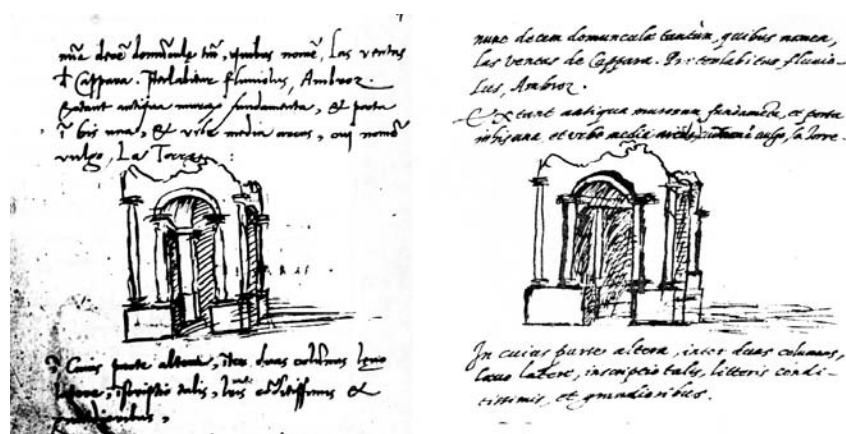 nūc decē domūculę tm̄, quibus nomē, Las ventas
d Cappara. Pterlabitur fluviolus, Ambroz.
Extant antiqua muror fundamenta, & porta
ī bis una, & urbe media arcus, cui nomē
vulgo, La Torre:
Cuius parte altera, īter duas columnas lęvo
latere, īscriptio talis, lris &
grandioribus,
nunc decem domuncula tantùm, quibus nomen,
las ventas de Cappara. Preterlabitus fluvio-
lus, Ambroz.
Extant antiqua murorum fundamēta, et porta
inhis una, et urbe media arcus, vulgo, la Torre.
In cuius parte altera, inter duas columnas,
laevo latere, inscriptio talis, litteris condi-
tissimis, et grandioribus.